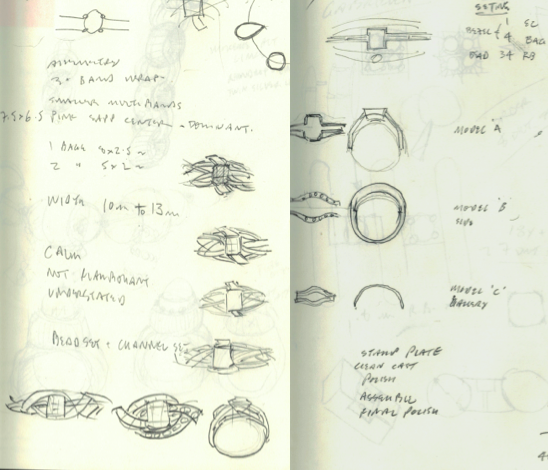 ASYMMETRY
3 BAND WRAP.
SIMILAR MULTI BANDS
7.5x6.5 PINK SAPP CENTER - DOMINANT.
1 BAGE 3x2.5
2 " 5x2
WIDTH 10m to 13m
CALM
NOT FLAMBOYANT
UNDERSTATED
BEAD SET & CHANNEL SET
SETTING
1 SC
BEZEL 4 BAG
BEAD 34 RB
MODEL 'A'
MODEL 'B'
MODEL 'C'
GALLERY
STAMP PLATE
CLEAN CAST
POLISH
ASSEMBLE
FINAL POLISH